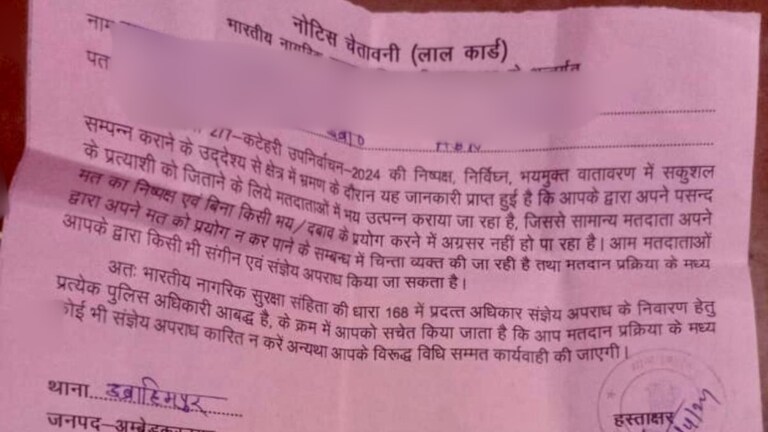 नोटिस चेतावनी (लाल कार्ड)
नाम
भारतीय नागरिक
पत
277-कटेहरी उपनिर्वाचन-2024 की निष्पक्ष, निर्विघ्न, भयमुक्त वातावरण में सकुशल
सम्पन्न कराने के उद्देश्य से क्षेत्र में भ्रमण के दौरान यह जानकारी प्राप्त हुई है कि आपके द्वारा अपने पसन्द
के प्रत्याशी को जिताने के लिये मतदाताओं में भय उत्पन्न कराया जा रहा है, जिससे सामान्य मतदाता अपने
मत का निष्पक्ष एवं बिना किसी भय/दबाव के प्रयोग करने में अग्रसर नहीं हो पा रहा है। आम मतदाताओं
द्वारा अपने मत को प्रयोग न कर पाने के सम्बन्ध में चिन्ता व्यक्त की जा रही है तथा मतदान प्रक्रिया के मध्य
आपके द्वारा किसी भी संगीन एवं संज्ञेय अपराध किया जा सकता है।
अतः भारतीय नागरिक सुरक्षा संहिता की धारा 168 में प्रदत्त अधिकार संज्ञेय अपराध के निवारण हेतु
प्रत्येक पुलिस अधिकारी आबद्ध है, के क्रम में आपको सचेत किया जाता है कि आप मतदान प्रक्रिया के मध्य
कोई भी संज्ञेय अपराध कारित न करें अन्यथा आपके विरूद्ध विधि सम्मत कार्यवाही की जाएगी।
थाना...इब्राहिमपुर
हस्ताक्षर
जनपद-अम्बेडकरनगर